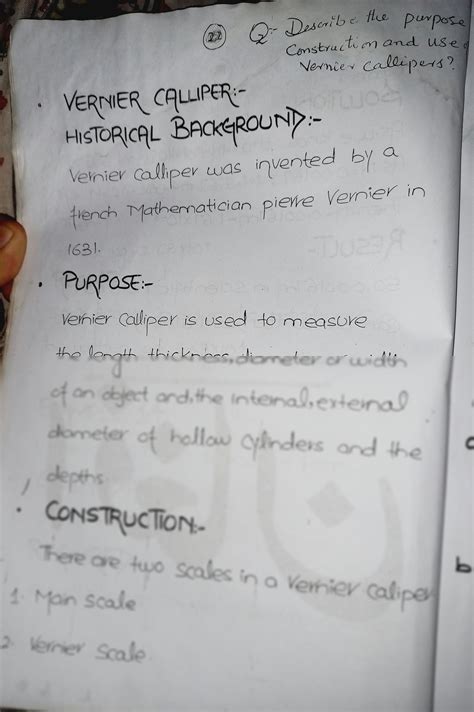 22 Q:- Describe the purpose
Construction and use
Vernier Callipers?
• VERNIER CALLIPER:-
HISTORICAL BACKGROUND:-
Vernier Calliper was invented by a
french Mathematician pierre Vernier in
1631.
• PURPOSE:-
Vernier Calliper is used to measure
the length thickness, diameter or width
of an object and, the internal, external
diameter of hollow cylinders and the
depths
• CONSTRUCTION:-
There are two scales in a Vernier caliper
1. Main scale
2. Vernier Scale
b